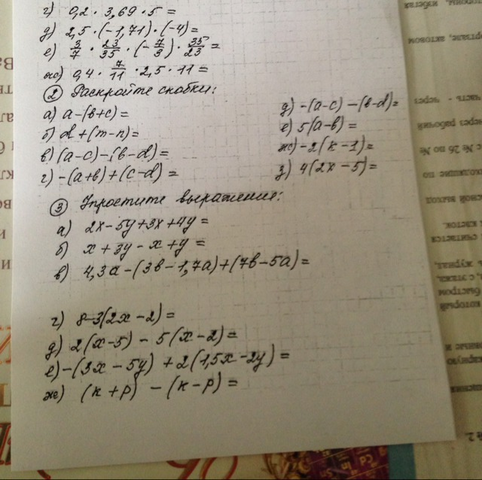 г) 0,2 · 3,69 · 5 =
д) 2,5 · (-1,71) · (-4) =
е) 3/7 · 23/35 · (-7/3) · 35/23 =
ж) 0,4 · 7/11 · 2,5 · 11 =
② Раскройте скобки:
а) a-(b+c)=
б) d+(m-n)=
в) (a-c)-(b-d)=
г) -(a+b)+(c-d)=
д) -(a-c)-(b-d)=
е) 5(a-b)=
ж) -2(k-1)=
з) 4(2x-5)=
③ Упростите выражения:
а) 2x-5y+3x+4y=
б) x+3y-x+y=
в) 4,3a-(3b-1,7a)+(7b-5a)=
г) 8-3(2x-2)=
д) 2(x-5)-5(x-2)=
е) -(3x-5y)+2(1,5x-2y)=
ж) (k+p)-(k-p)=